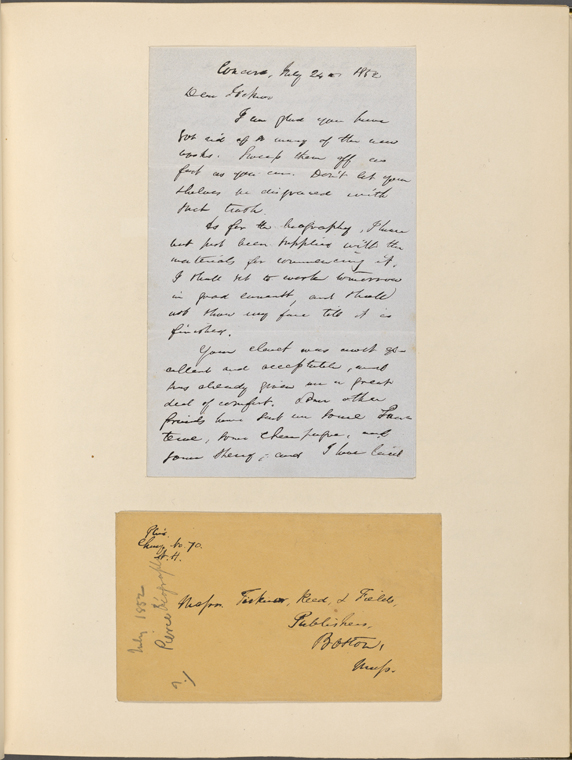 Concord, July 24th 1852
Dear Ticknor
I am glad you have
got rid of so many of the new
books. Sweep them off as
fast as you can. Don't let your
shelves be disgraced with
such trash.
As for the biography, I have
but just been supplied with the
materials for commencing it.
I shall set to work tomorrow
in good earnest, and shall
not show my face till it is
finished.
Your claret was most ex-
cellent and acceptable, and
has already given me a great
deal of comfort. Some other
friends have sent me some Sau-
terne, some champagne, and
some sherry; and I have laid
Chrg. No. 70.
N. H.
July 1852
Pierce Biography
Messrs. Ticknor, Reed, & Fields,
Publishers,
Boston,
Mass.